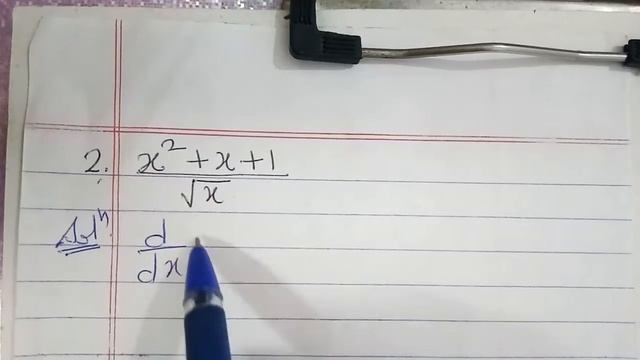 2. x² + x + 1
√x
Solⁿ d
dx